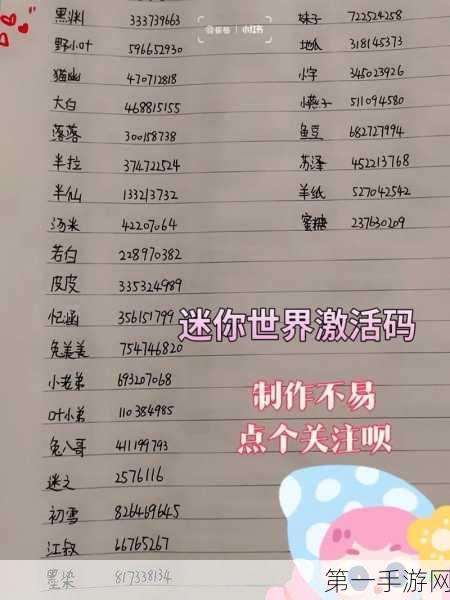 黑渊 333739663
野小叶 596652930
猫幽 470712818
大白 468815155
落落 300158738
半拉 374722524
半仙 133213732
汤米 42207064
若白 228970382
皮皮 335324989
忆涵 356151799
兔美美 754746820
小老弟 693207068
叶小弟 110384985
兔八哥 411199793
迷之 2576116
初雪 826469645
江叙 66765267
墨染 817338134
妹子 722524258
地瓜 318145373
小宇 345023926
小燕子 511094580
鱼豆 682727994
苏泽 452213768
羊纸 527042542
蜜糖 237630209
小红书
迷你世界激活码
制作不易
点个关注呗
第一手游网